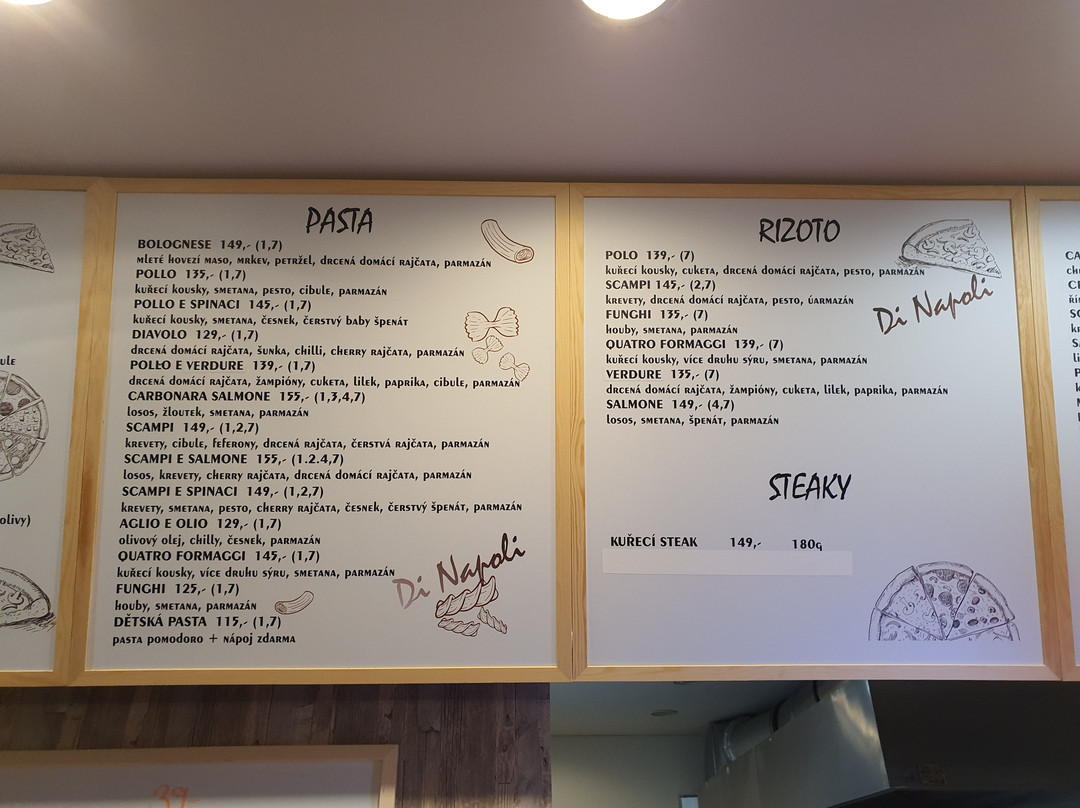 PASTA
BOLOGNESE 149,- (1,7)
mleté hovezí maso, mrkev, petržel, drcená domácí rajčata, parmazán
POLLO 135,- (1,7)
kuřecí kousky, smetana, pesto, cibule, parmazán
POLLO E SPINACI 145,- (1,7)
kuřecí kousky, smetana, česnek, čerstvý baby špenát
DIAVOLO 129,- (1,7)
drcená domácí rajčata, šunka, chilli, cherry rajčata, parmazán
POLLO E VERDURE 139,- (1,7)
drcená domácí rajčata, žampióny, cuketa, lilek, paprika, cibule, parmazán
CARBONARA SALMONE 155,- (1,3,4,7)
losos, žloutek, smetana, parmazán
SCAMPI 149,- (1,2,7)
krevety, cibule, feferony, drcená rajčata, čerstvá rajčata, parmazán
SCAMPI E SALMONE 155,- (1.2.4,7)
losos, krevety, cherry rajčata, drcená domácí rajčata, parmazán
SCAMPI E SPINACI 149,- (1,2,7)
krevety, smetana, pesto, cherry rajčata, česnek, čerstvý špenát, parmazán
AGLIO E OLIO 129,- (1,7)
olivový olej, chilly, česnek, parmazán
QUATRO FORMAGGI 145,- (1,7)
kuřecí kousky, více druhu sýru, smetana, parmazán
FUNGHI 125,- (1,7)
houby, smetana, parmazán
DĚTSKÁ PASTA 115,- (1,7)
pasta pomodoro + nápoj zdarma
Di Napoli
RIZOTO
POLO 139,- (7)
kuřecí kousky, cuketa, drcená domácí rajčata, pesto, parmazán
SCAMPI 145,- (2,7)
krevety, drcená domácí rajčata, pesto, úarmazán
FUNGHI 135,- (7)
houby, smetana, parmazán
QUATRO FORMAGGI 139,- (7)
kuřecí kousky, více druhu sýru, smetana, parmazán
VERDURE 135,- (7)
drcená domácí rajčata, žampióny, cuketa, lilek, paprika, parmazán
SALMONE 149,- (4,7)
losos, smetana, špenát, parmazán
Di Napoli
STEAKY
KUŘECÍ STEAK 149,- 180g
olivy)
39,-